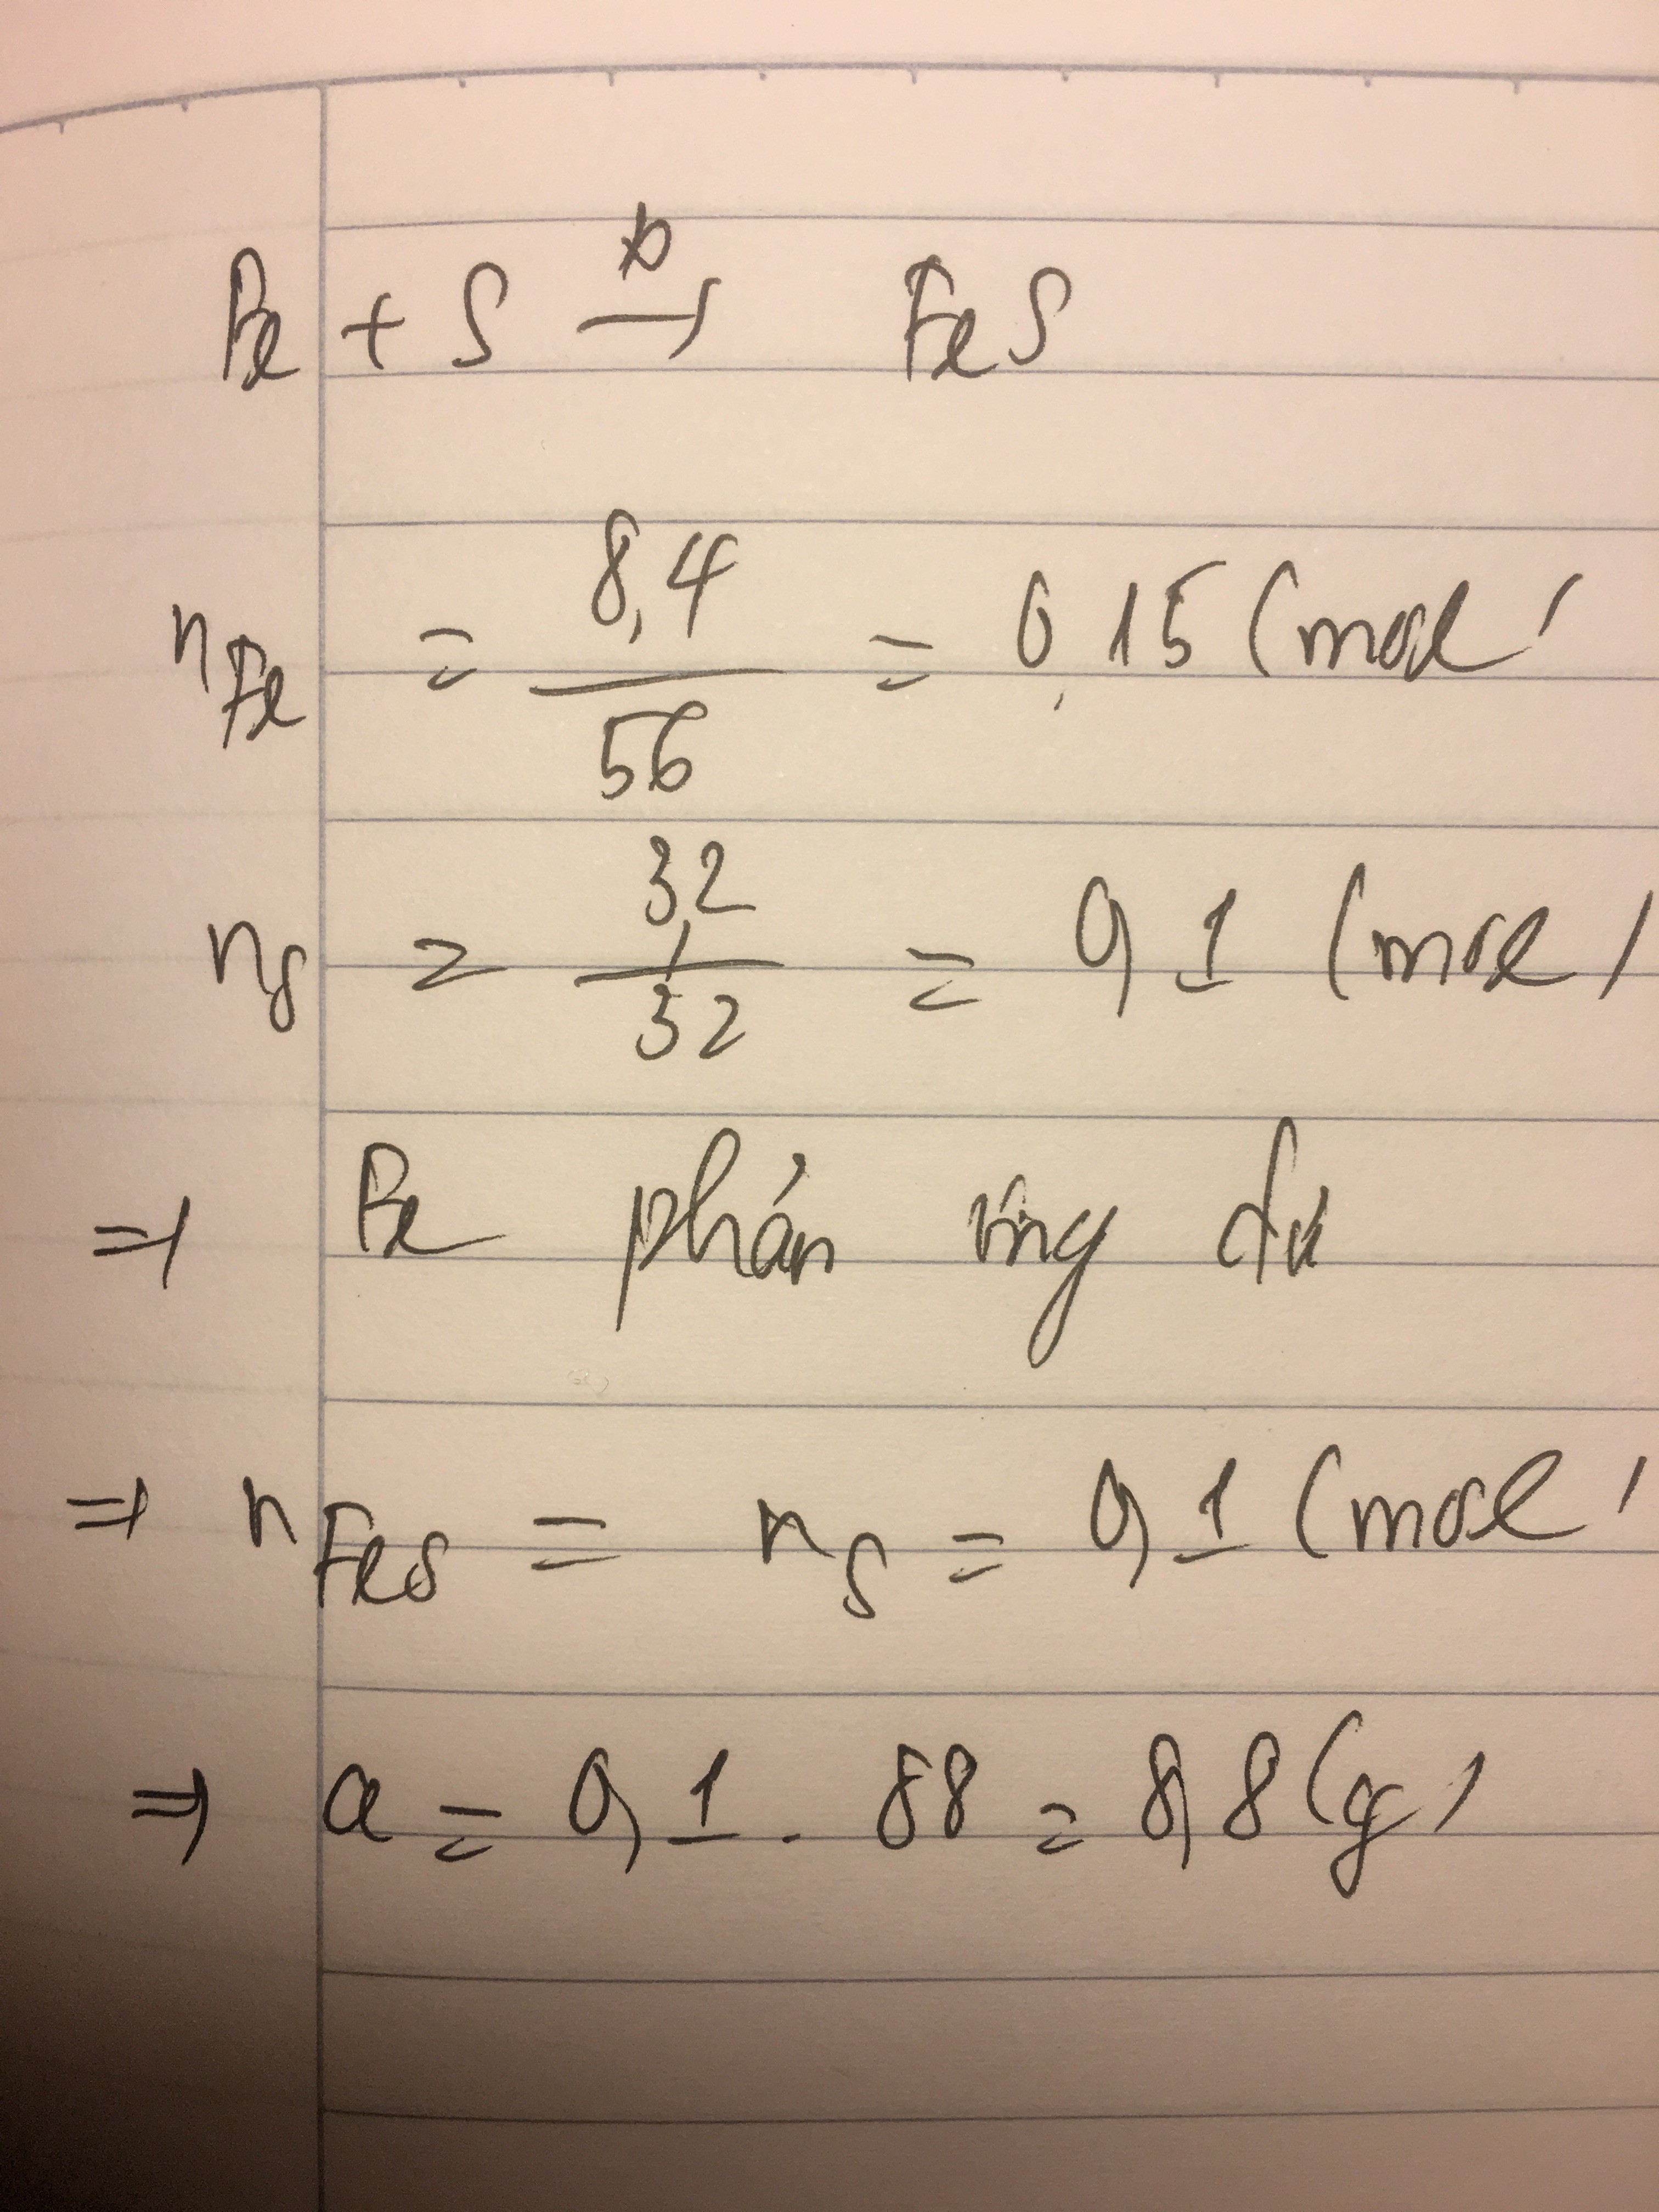 Fe + S t° → FeS
nFe = 8,4 / 56 = 0,15 (mol)
nS = 3,2 / 32 = 0,1 (mol)
⇒ Fe phản ứng dư
⇒ nFeS = nS = 0,1 (mol)
⇒ a = 0,1 . 88 = 8,8 (g)